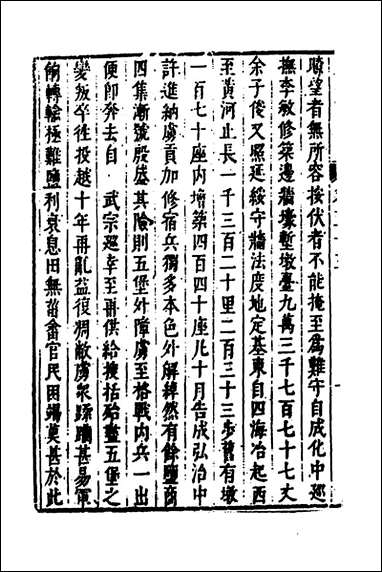 瞭望者無所容按伏者不能掩至爲難守自成化中廵
撫李敏修築邊牆壕塹墩臺九萬三千七百七十七丈
余子俊又照延綏守牆法度地定基東自四海冶起西
至黄河止長一千三百二十里二百三十三步舊有墩
一百七十座内增築四百四十座凡十月告成弘治中
許進納虜貢加修宿兵獨多本色外解綽然有餘鹽商
四集漸號殷盛其險則五堡外障虜至格戰内兵一出
便即奔去自 武宗廵幸至再供給搜括殆盡五堡之
變叛卒徃投越十年再亂益復凋敝虜衆蹂躪甚易軍
餉轉輸極難鹽利衰息田無菑畬官民困竭莫甚於此